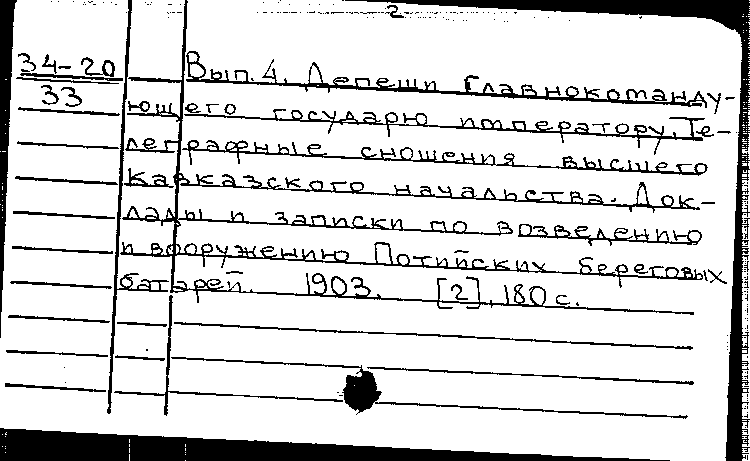 2
34-20
33
Вып. 4. Депеши Главнокоманду-
ющего государю императору. Те-
леграфные сношения высшего
Кавказского начальства. Док-
лады и записки по возведению
и вооружению Потийских береговых
батарей. 1903. [2], 180 с.